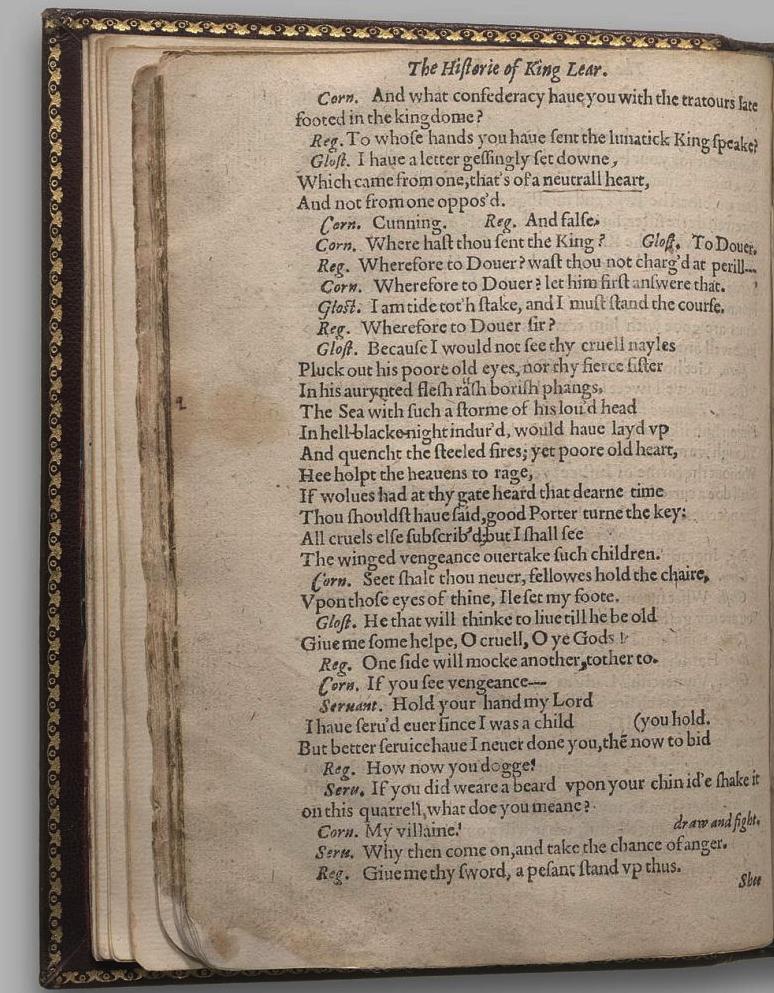 The Hiſtorie of King Lear.
Corn. And what confederacy haue you with the tratours late
footed in the kingdome?
Reg. To whoſe hands you haue ſent the lunatick King ſpeake?
Gloſt. I haue a letter geſſingly ſet downe,
Which came from one, that's of a neutrall heart,
And not from one oppos'd.
Corn. Cunning. Reg. And falſe.
Corn. Where haſt thou ſent the King? Gloſt. To Douer.
Reg. Wherefore to Douer? waſt thou not charg'd at perill---
Corn. Wherefore to Douer? let him firſt anſwere that.
Gloſt. I am tide tot'h ſtake, and I muſt ſtand the courſe.
Reg. Wherefore to Douer ſir?
Gloſt. Becauſe I would not ſee thy cruell nayles
Pluck out his poore old eyes, nor thy fierce ſiſter
In his aurynted fleſh raſh boriſh phangs,
The Sea with ſuch a ſtorme of his lou'd head
In hell-blacke-night indur'd, would haue layd vp
And quencht the ſteeled fires; yet poore old heart,
Hee holpt the heauens to rage,
If wolues had at thy gate heard that dearne time
Thou ſhouldſt haue ſaid, good Porter turne the key:
All cruels elſe ſubſcrib'd, but I ſhall ſee
The winged vengeance ouertake ſuch children.
Corn. Seet ſhalt thou neuer, fellowes hold the chaire,
Vpon thoſe eyes of thine, Ile ſet my foote.
Gloſt. He that will thinke to liue till he be old
Giue me ſome helpe, O cruell, O ye Gods!
Reg. One ſide will mocke another, tother to.
Corn. If you ſee vengeance---
Seruant. Hold your hand my Lord
I haue ſeru'd euer ſince I was a child (you hold.
But better ſeruice haue I neuer done you, thē now to bid
Reg. How now you dogge!
Seru. If you did weare a beard vpon your chin id'e ſhake it
on this quarrell, what doe you meane?
Corn. My villaine! draw and fight.
Seru. Why then come on, and take the chance of anger.
Reg. Giue me thy ſword, a peſant ſtand vp thus.
Shee